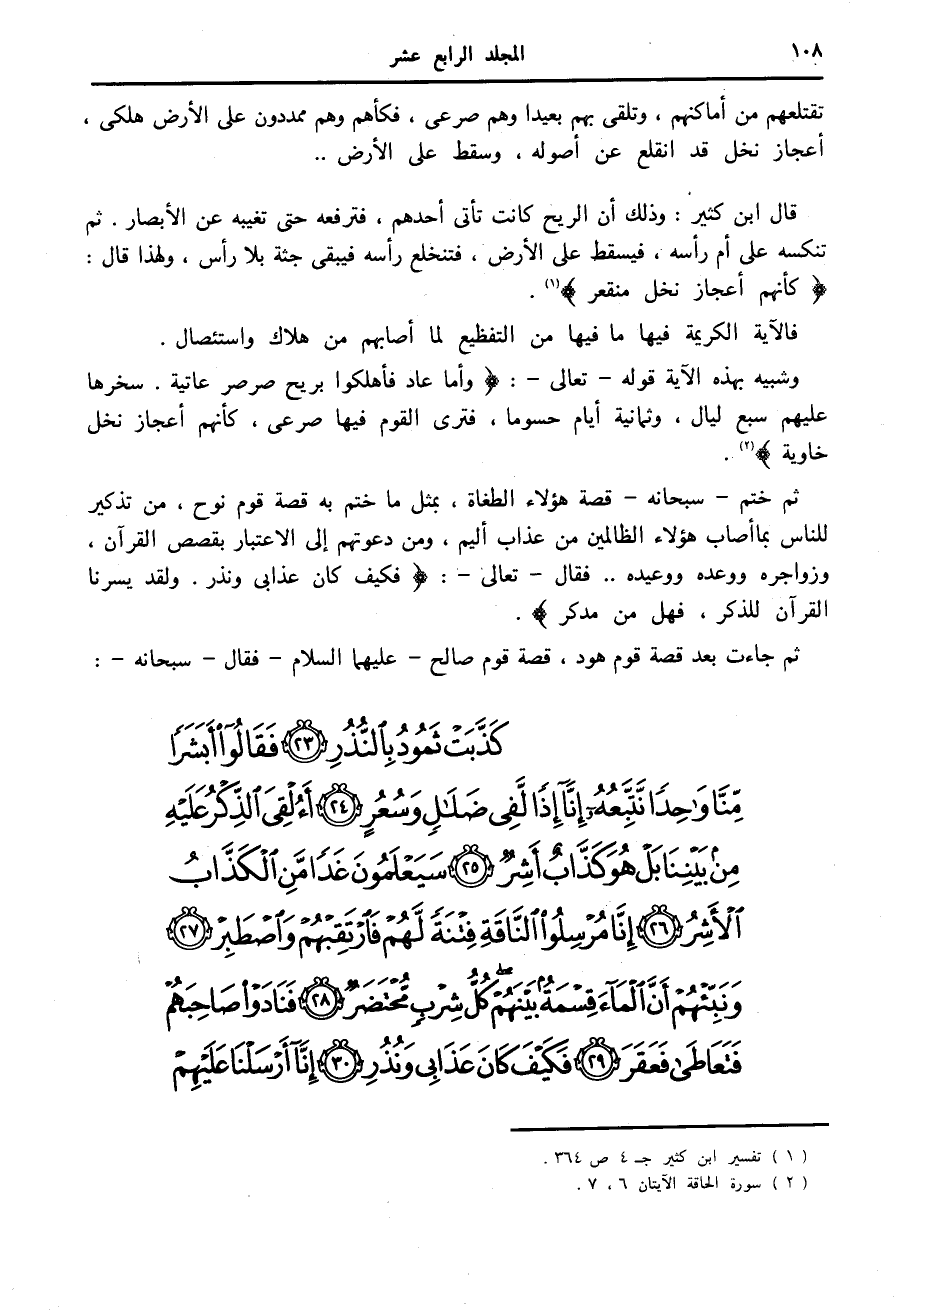 ١٠٨
المجلد الرابع عشر
تقتلعهم من أماكنهم ، وتلقى بهم بعيدا وهم صرعى ، فكأهم وهم ممددون على الأرض هلكى ،
أعجاز نخل قد انقلع عن أصوله ، وسقط على الأرض ..
قال ابن كثير : وذلك أن الريح كانت تأتى أحدهم ، فترفعه حتى تغيبه عن الأبصار . ثم
تنكسه على أم رأسه ، فيسقط على الأرض ، فتنخلع رأسه فيبقى جثة بلا رأس ، ولهذا قال :
﴿ كأنهم أعجاز نخل منقعر ﴾(١) .
فالآية الكريمة فيها ما فيها من التفظيع لما أصابهم من هلاك واستئصال .
وشبيه بهذه الآية قوله - تعالى - : ﴿ وأما عاد فأهلكوا بريح صرصر عاتية . سخرها
عليهم سبع ليال ، وثمانية أيام حسوما ، فترى القوم فيها صرعى ، كأنهم أعجاز نخل
خاوية ﴾(٢) .
ثم ختم - سبحانه - قصة هؤلاء الطغاة ، بمثل ما ختم به قصة قوم نوح ، من تذكير
للناس بماأصاب هؤلاء الظالمين من عذاب أليم ، ومن دعوتهم إلى الاعتبار بقصص القرآن ،
وزواجره ووعده ووعيده .. فقال - تعالى - : ﴿ فكيف كان عذابى ونذر . ولقد يسرنا
القرآن للذكر ، فهل من مدكر ﴾ .
ثم جاءت بعد قصة قوم هود ، قصة قوم صالح - عليهما السلام - فقال - سبحانه - :
كَذَّبَتْ ثَمُودُ بِالنُّذُرِ ﴿٢٣﴾ فَقَالُوٓا۟ أَبَشَرًا
مِّنَّا وَٰحِدًا نَّتَّبِعُهُۥٓ إِنَّآ إِذًا لَّفِى ضَلَٰلٍ وَسُعُرٍ ﴿٢٤﴾ أَءُلْقِىَ ٱلذِّكْرُ عَلَيْهِ
مِنۢ بَيْنِنَا بَلْ هُوَ كَذَّابٌ أَشِرٌ ﴿٢٥﴾ سَيَعْلَمُونَ غَدًا مَّنِ ٱلْكَذَّابُ
ٱلْأَشِرُ ﴿٢٦﴾ إِنَّا مُرْسِلُوا۟ ٱلنَّاقَةِ فِتْنَةً لَّهُمْ فَٱرْتَقِبْهُمْ وَٱصْطَبِرْ ﴿٢٧﴾
وَنَبِّئْهُمْ أَنَّ ٱلْمَآءَ قِسْمَةٌۢ بَيْنَهُمْ ۖ كُلُّ شِرْبٍ مُّحْتَضَرٌ ﴿٢٨﴾ فَنَادَوْا۟ صَاحِبَهُمْ
فَتَعَاطَىٰ فَعَقَرَ ﴿٢٩﴾ فَكَيْفَ كَانَ عَذَابِى وَنُذُرِ ﴿٣٠﴾ إِنَّآ أَرْسَلْنَا عَلَيْهِمْ
( ١ ) تفسير ابن كثير جـ ٤ ص ٣٦٤ .
( ٢ ) سورة الحاقة الآيتان ٦ ، ٧ .